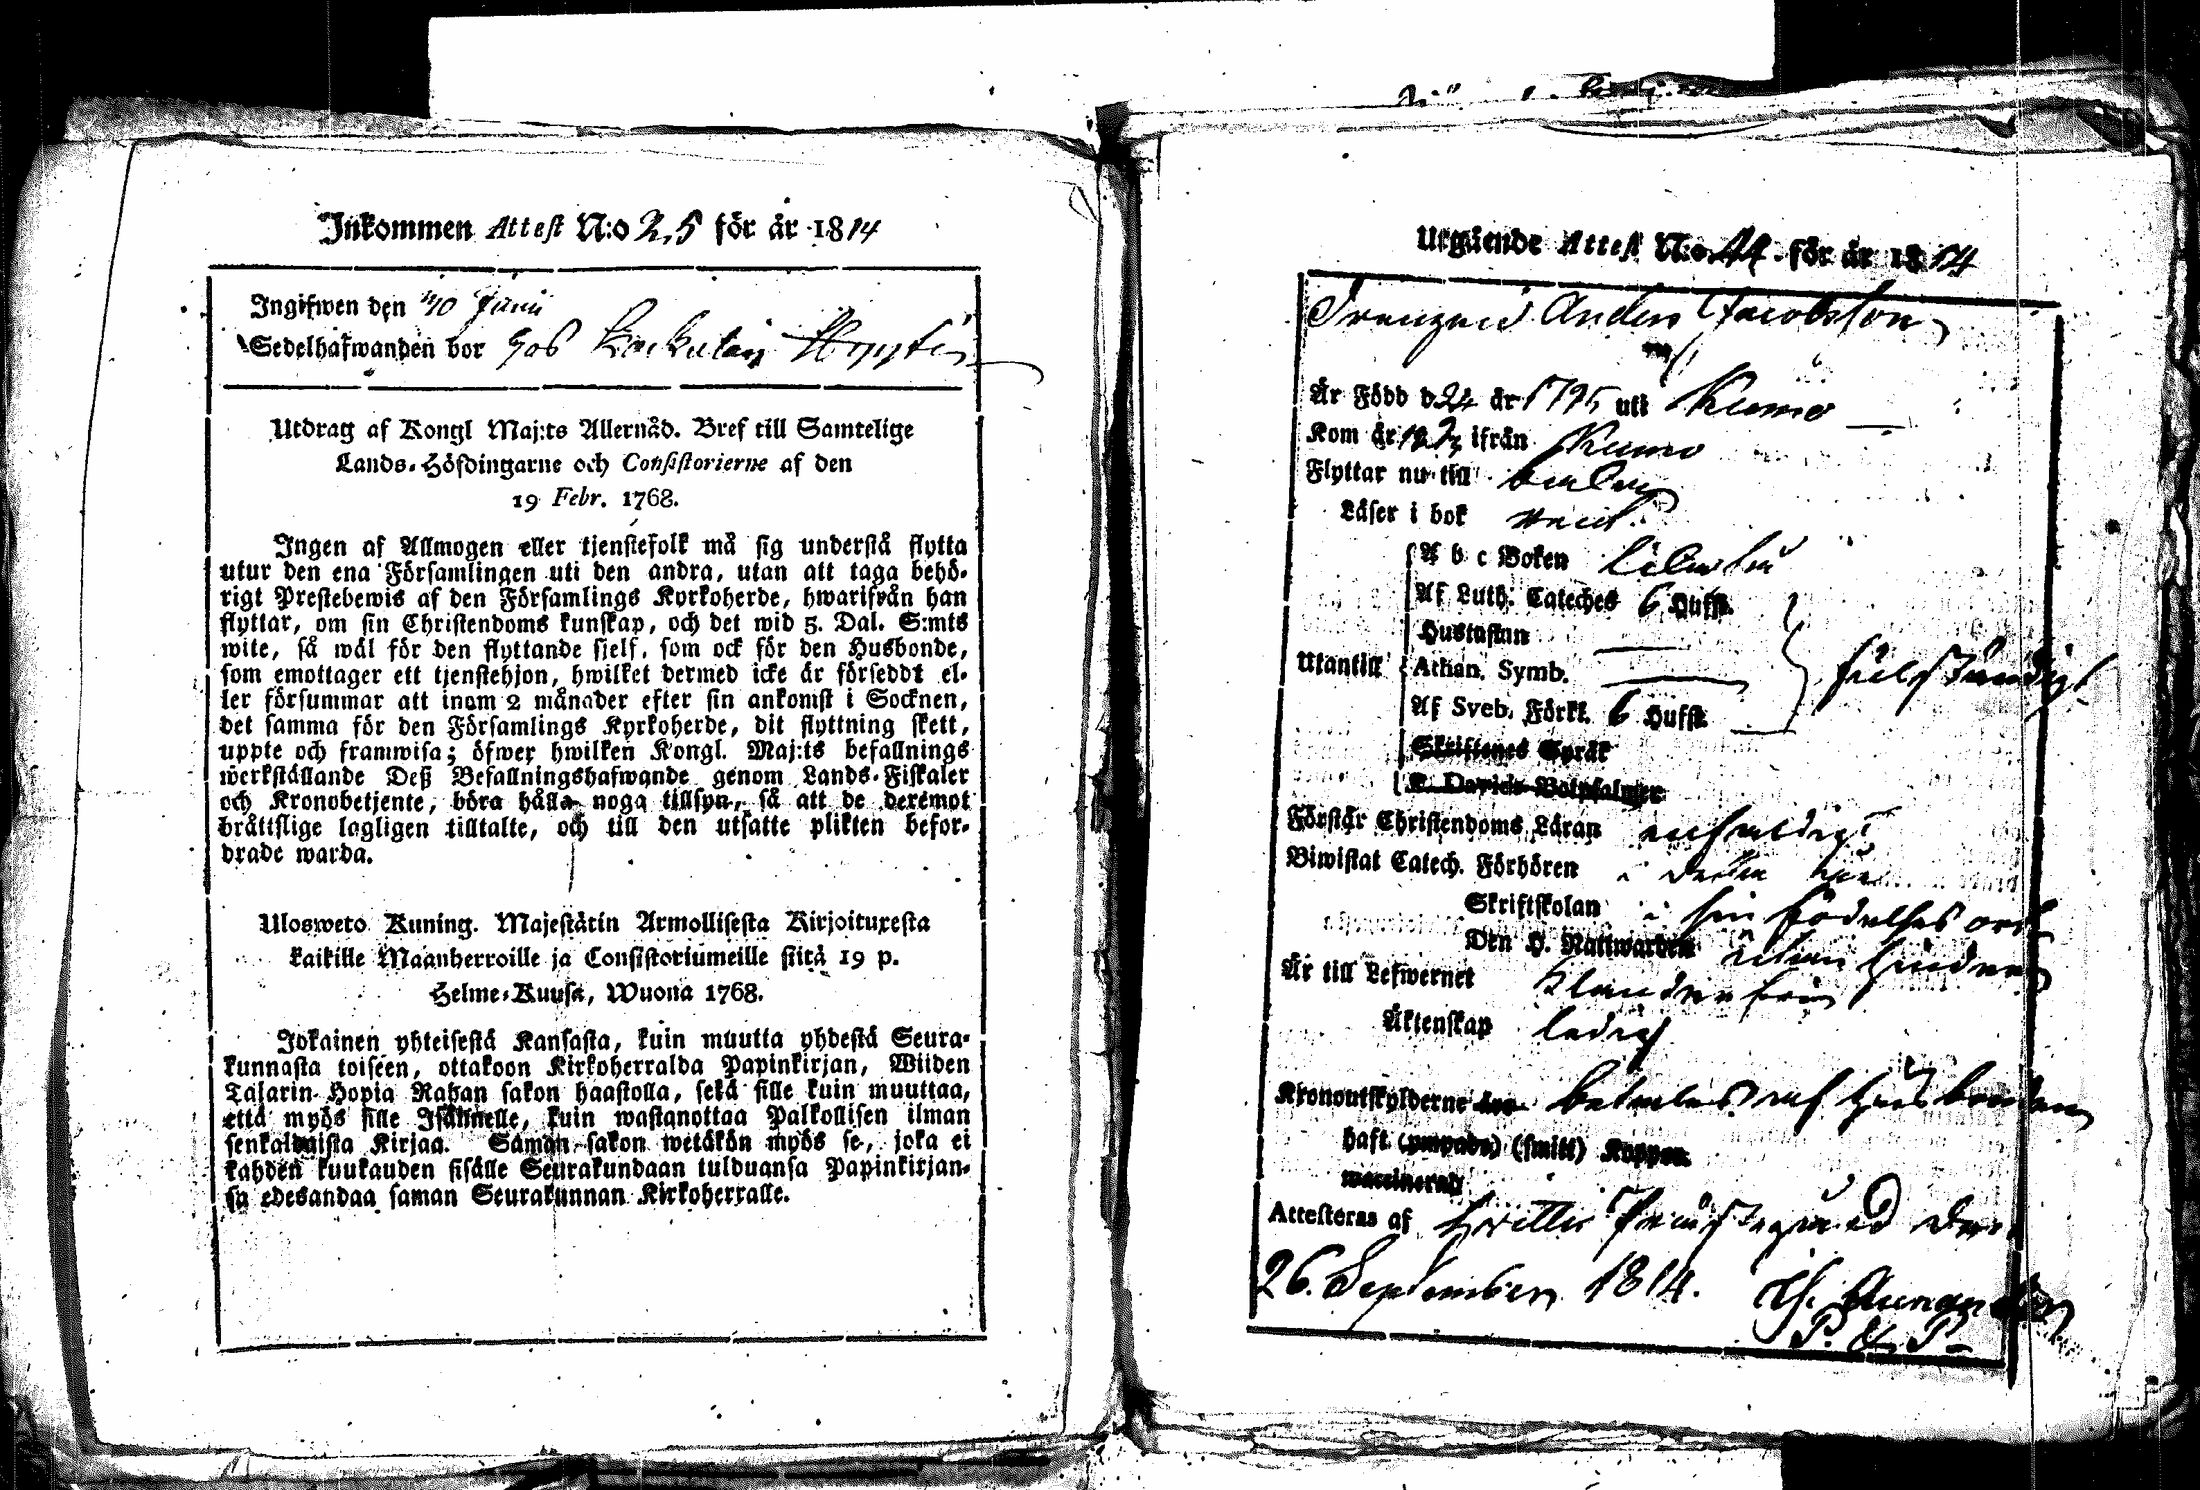 Inkommen Attest N:o 25 för år 1814
Ingifwen den 10 Junii
Sedelhafwanden bor hos
Utdrag af Kongl Maj:ts Allernåd. Bref till Samtelige
Lands-Höfdingarne och Consistorierne af den
19 Febr. 1768.
Ingen af Allmogen eller tjenstefolk må sig understå flytta
utur den ena Församlingen uti den andra, utan att taga behö-
rigt Prestebewis af den Församlings Kyrkoherde, hwarifrån han
flyttar, om sin Christendoms kunskap, och det wid 5. Dal. S:mts
wite, så wäl för den flyttande sjelf, som ock för den Husbonde,
som emottager ett tjenstehjon, hwilket dermed icke är förseddt el-
ler försummar att inom 2 månader efter sin ankomst i Socknen,
det samma för den Församlings Kyrkoherde, dit flyttning skett,
uppte och framwisa; öfwer hwilken Kongl. Maj:ts befallnings
werkställande Deß Befallningshafwande genom Lands-Fiskaler
och Kronobetjente, böra hålla noga tillsyn, så att de deremot
bråttslige lagligen tilltalte, och till den utsatte plikten befor-
drade warda.
Ulosweto Kuning. Majestätin Armollisesta Kirjoituxesta
kaikille Maanherroille ja Consistoriumeille siitä 19 p.
Helme-Kuusa, Wuona 1768.
Jokainen yhteisestä Kansasta, kuin muutta yhdestä Seura-
kunnasta toiseen, ottakoon Kirkoherralda Papinkirjan, Wiiden
Talarin Hopia Rahan sakon haastolla, sekä sille kuin muuttaa,
että myös sille Isännelle, kuin wastanottaa Palkollisen ilman
senkaldaista Kirjaa. Saman sakon wetäkön myös se, joka ei
kahden kuukauden sisälle Seurakundaan tulduansa Papinkirjan-
sa edesandaa saman Seurakunnan Kirkoherralle.
Utgående Attest N:o 44 för år 1814
Drengen Anders Jacobsson
Är Född d 24 år 1795 uti Kumo
Kom år ifrån Kumo
Flyttar nu till
Läser i bok
A b c Boken
Af Luth. Cateches 6 Hufst.
Hustaflan
Utantill Athan. Symb. fulständigt
Af Sveb. Förkl. 6 Hufst.
Skriftenes Språk
K. Davids Botpsalmer
Förstår Christendoms Läran enfaldigt
Biwistat Catech. Förhören i
Skriftskolan i sin födelses ort
Den H. Nattwarden utan hinder
Är till Lefwernet klanderfri
Äktenskap ledig
Kronoutskylderne äro betalas af husbonden
haft (ympade) (smitt) Koppor
waccinerad
Attesteras af Hvittis Prästegård den
26. September 1814.
P. & P.